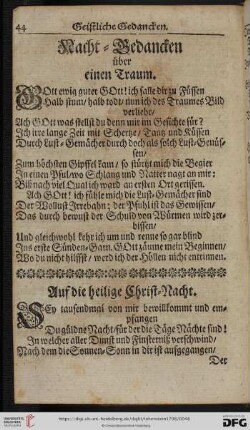 44 Geistliche Gedancken.
Nacht-Gedancken
über
einen Traum.
GOtt ewig guter GOtt! ich falle dir zu Füssen
Halb stum/ halb todt/ nun ich des Traumes Bild
verliehr/
Ach GOtt was stellst du denn mir im Gesichte für?
Ich irre lange Zeit mit Schertze/ Tantz und Küssen
Durch Lust-Gemächer durch doch als solch Lust-Genüs-
sen/
Zum höchsten Gipffel kam/ so stürtzt mich die Begier
In einen Pful/ wo Schlang und Natter nagt an mir:
Biß nach viel Qual ich ward an ersten Ort gerissen.
Ach GOtt! ich fühle mich die Lust-Gemächer sind
Der Wollust Irrebahn: der Pfuhl ist das Gewissen/
Das durch bewust der Schuld von Würmen wird zer-
bissen/
Und gleichwohl kehr ich um und renne so gar blind
Ins erste Sünden-Garn. GOtt zäume mein Beginnen/
Wo du nicht hilffst/ werd ich der Höllen nicht entrinnen.
Auf die heilige Christ-Nacht.
SEy tausendmal von mir bewillkommt und em-
pfangen
Du güldne Nacht/ für der die Tage Nächte sind!
In welcher aller Dunst und Finsternis verschwind/
Nach dem die Sonnen-Sonn in dir ist aufgegangen/
Der